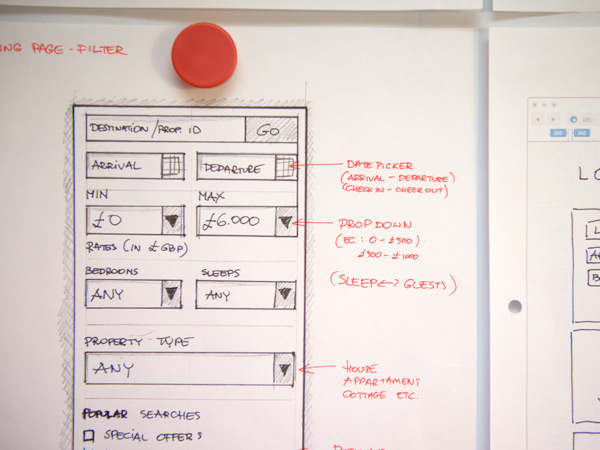 ING PAGE - FILTER
DESTINATION / PROP. ID
GO
ARRIVAL
DEPARTURE
DATE PICKER
(ARRIVAL - DEPARTURE)
(CHECK IN - CHECK OUT)
MIN
MAX
£0
£6.000
DROPDOWN
(EC: 0 - £500)
£500 - £1000
RATES (IN £ GBP)
BEDROOMS
SLEEPS
(SLEEP <-> GUESTS)
ANY
ANY
PROPERTY TYPE
ANY
HOUSE
APPARTAMENT
COTTAGE ETC.
POPULAR SEARCHES
SPECIAL OFFERS
URL:
LO